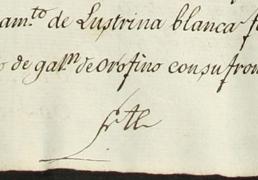 am.to de Lustrina blanca
de gal.n de oro fino con su fron